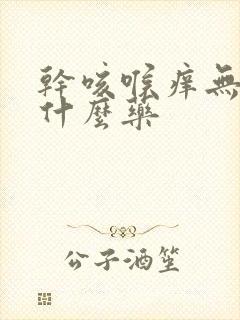 幹咳喉痒無
什麼藥
公子酒笙